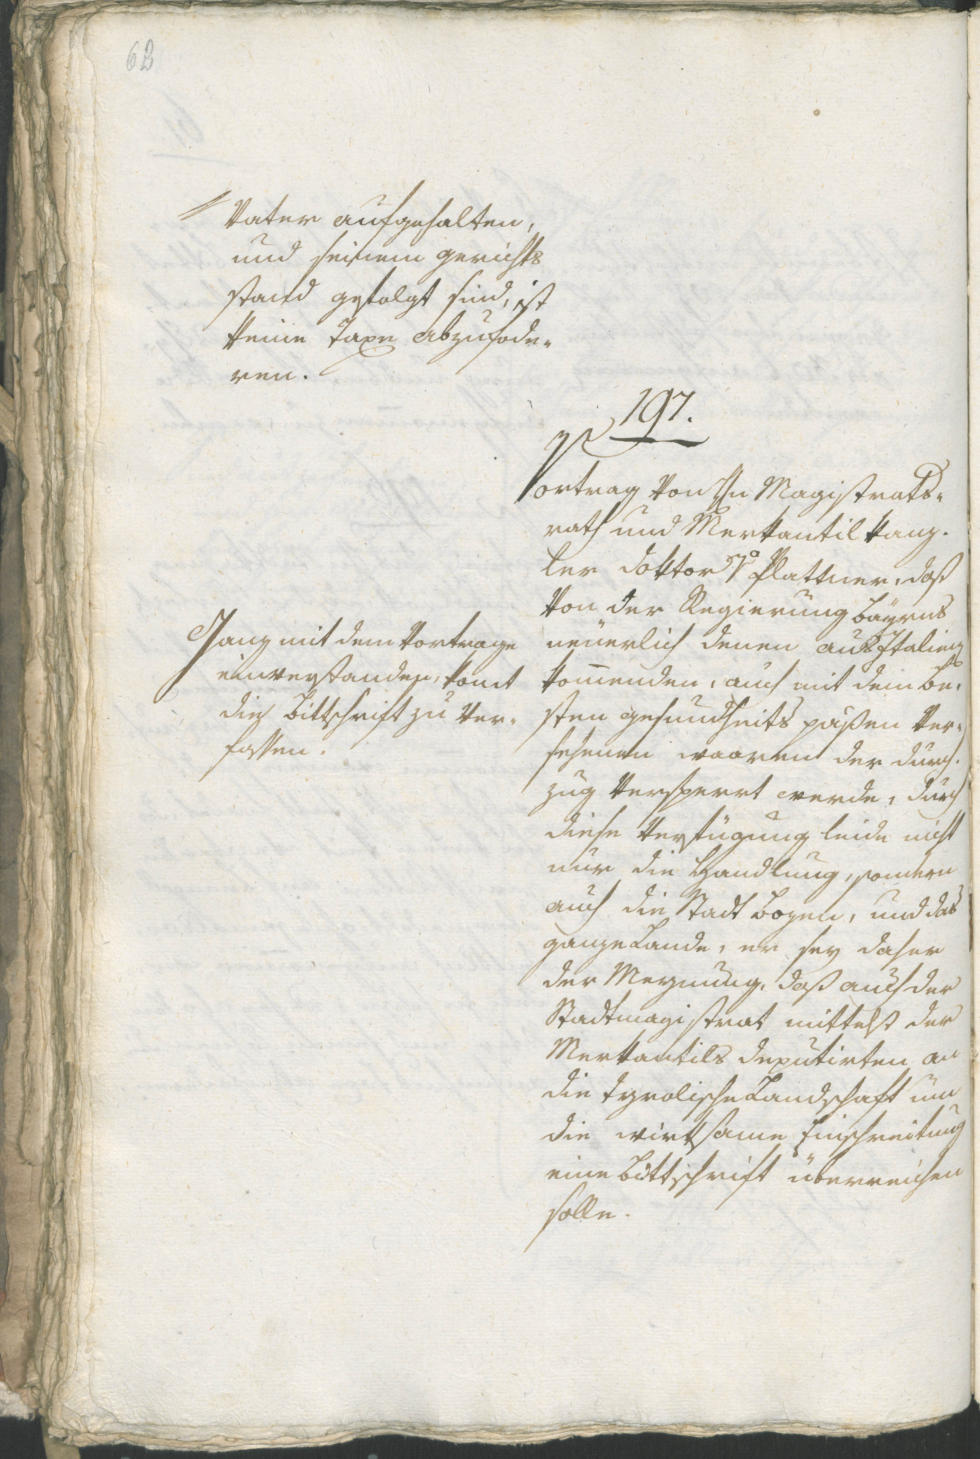 62
// Vater aufgehalten,
und seinem gerichts
stand gefolgt sind, ist
keine Taxe abzufode-
ren.
197.
Vortrag von Hn Magistrats-
rath und Merkantil kanz-
ler doktor Plattner, daß
von der Regierung Bayrns
neuerlich denen aus Italien
kommenden, auch mit dem be-
sten gesundheits päßen ver-
sehenen waaren der durch-
zug versperrt werde, durch
diese verfügung leide nicht
nur die Handlung, sondern
auch die Stadt Bozen, und das
ganze Lande, er sey daher
der Meynung, daß auch der
Stadtmagistrat mittelst der
Merkantils deputirten an
die tyrolische Landschaft um
die wirksame Einschreitung
eine Bittschrift überreichen
solle.
Ganz mit dem Vortrage
einverstanden, komt
die Bittschrift zu ver-
fassen.